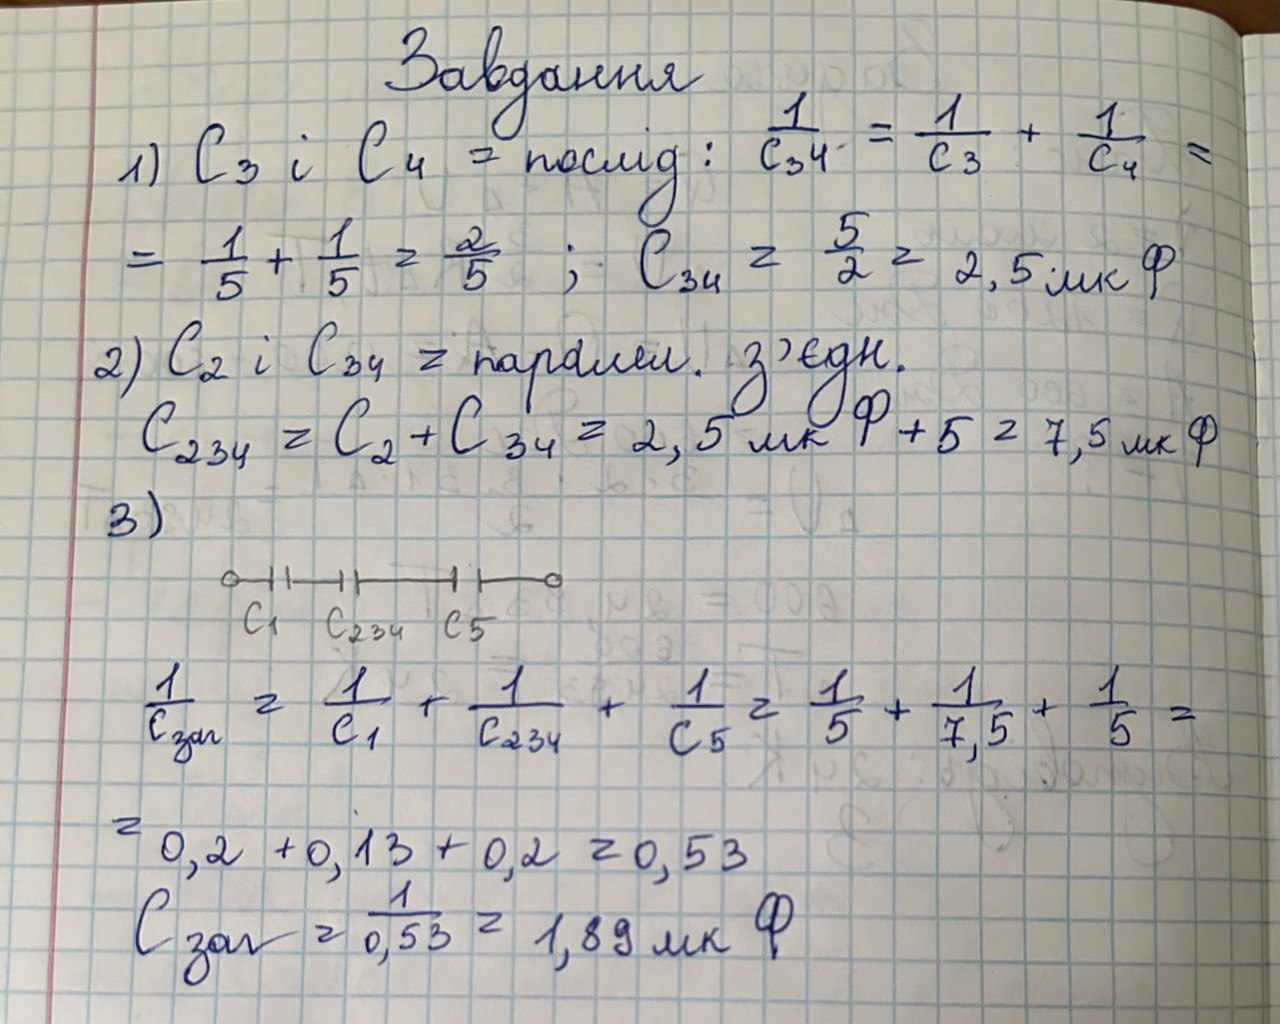 Завдання
1) C3 і C4 = послід: 1/C34 = 1/C3 + 1/C4 =
= 1/5 + 1/5 = 2/5 ; C34 = 5/2 = 2,5 мк Ф
2) C2 і C34 = паралел. з'єдн.
C234 = C2 + C34 = 2,5 мк Ф + 5 = 7,5 мк Ф
3)
C1 C234 C5
1/Cзаг = 1/C1 + 1/C234 + 1/C5 = 1/5 + 1/7,5 + 1/5 =
= 0,2 + 0,13 + 0,2 = 0,53
Cзаг = 1/0,53 = 1,89 мк Ф